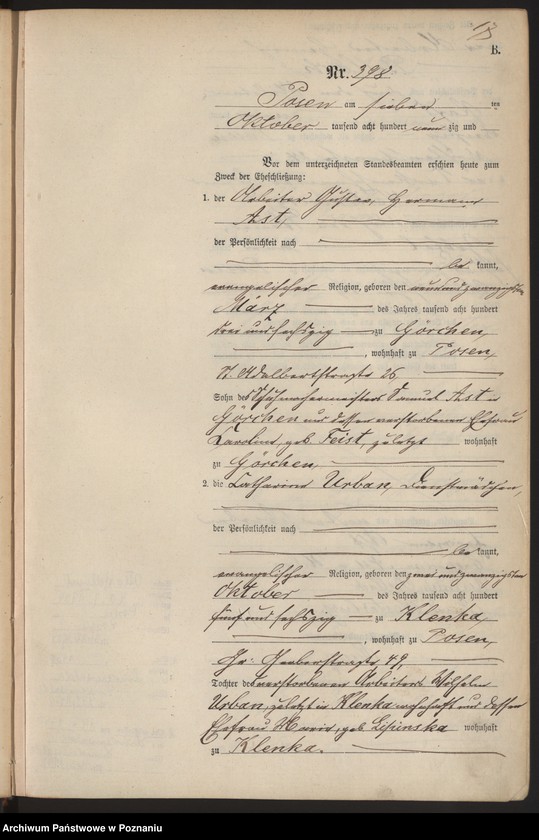 B.
Nr. 398
Posen am sieben ten
Oktober tausend acht hundert neun zig und
Vor dem unterzeichneten Standesbeamten erschien heute zum
Zweck der Eheschließung:
1. der Arbeiter Gustav Hermann
Ast,
der Persönlichkeit nach
be kannt,
evangelischer Religion, geboren den neunundzwanzigsten
März des Jahres tausend acht hundert
drei und sechszig zu Görchen,
, wohnhaft zu Posen,
St. Adalbertstraße 26,
Sohn des Schuhmachermeisters Samuel Ast in
Görchen und dessen verstorbenen Ehefrau
Caroline, geb. Feist, zuletzt wohnhaft
zu Görchen,
2. die Catharine Urban, Dienstmädchen,
der Persönlichkeit nach
be kannt,
evangelischer Religion, geboren den zwei und zwanzigsten
Oktober des Jahres tausend acht hundert
fünf und sechszig zu Klenka,
, wohnhaft zu Posen,
Gr. Gerberstraße 49,
Tochter des verstorbenen Arbeiters Wilhelm
Urban, zuletzt in Klenka wohnhaft und dessen
Ehefrau Marie, geb. Lipinska wohnhaft
zu Klenka.
Archiwum Państwowe w Poznaniu
szukajwarchiwach.pl